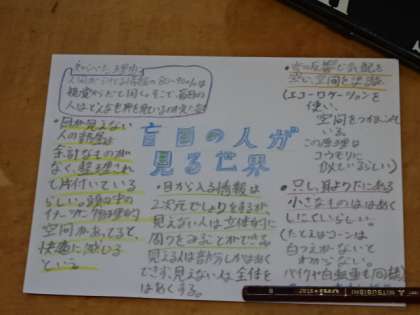 知りたいと思った理由
人間がうけとる情報の80〜90%は
視覚からだと聞く。そこで、盲目の
人はどんな世界を見ているのか
盲目の人が
見る世界
・目が見えない
人の部屋は
余計なものが
なく、整理され
て片付いている
らしい。頭の中の
イメージと物理的
空間があってると、
快適に
という。
・目から入る情報は
2次元でしょりをするが、
見えない人は立体的に
周りをみることができる
見える人は部分しかはあく
できず、見えない人は全体を
はあくする。
・音の反響で気配を
空い、空間を認識
(エコーロケーションを
使い、
空間をつかまえて
いる。
この原理は
コウモリに
似ているらしい)
・只し、耳よりたにある
小さなものははあく
しにくいらしい。
(たとえばコーンは
白つえがないと
わからない。
バイクや自転車も同様)
MITSUBISHI